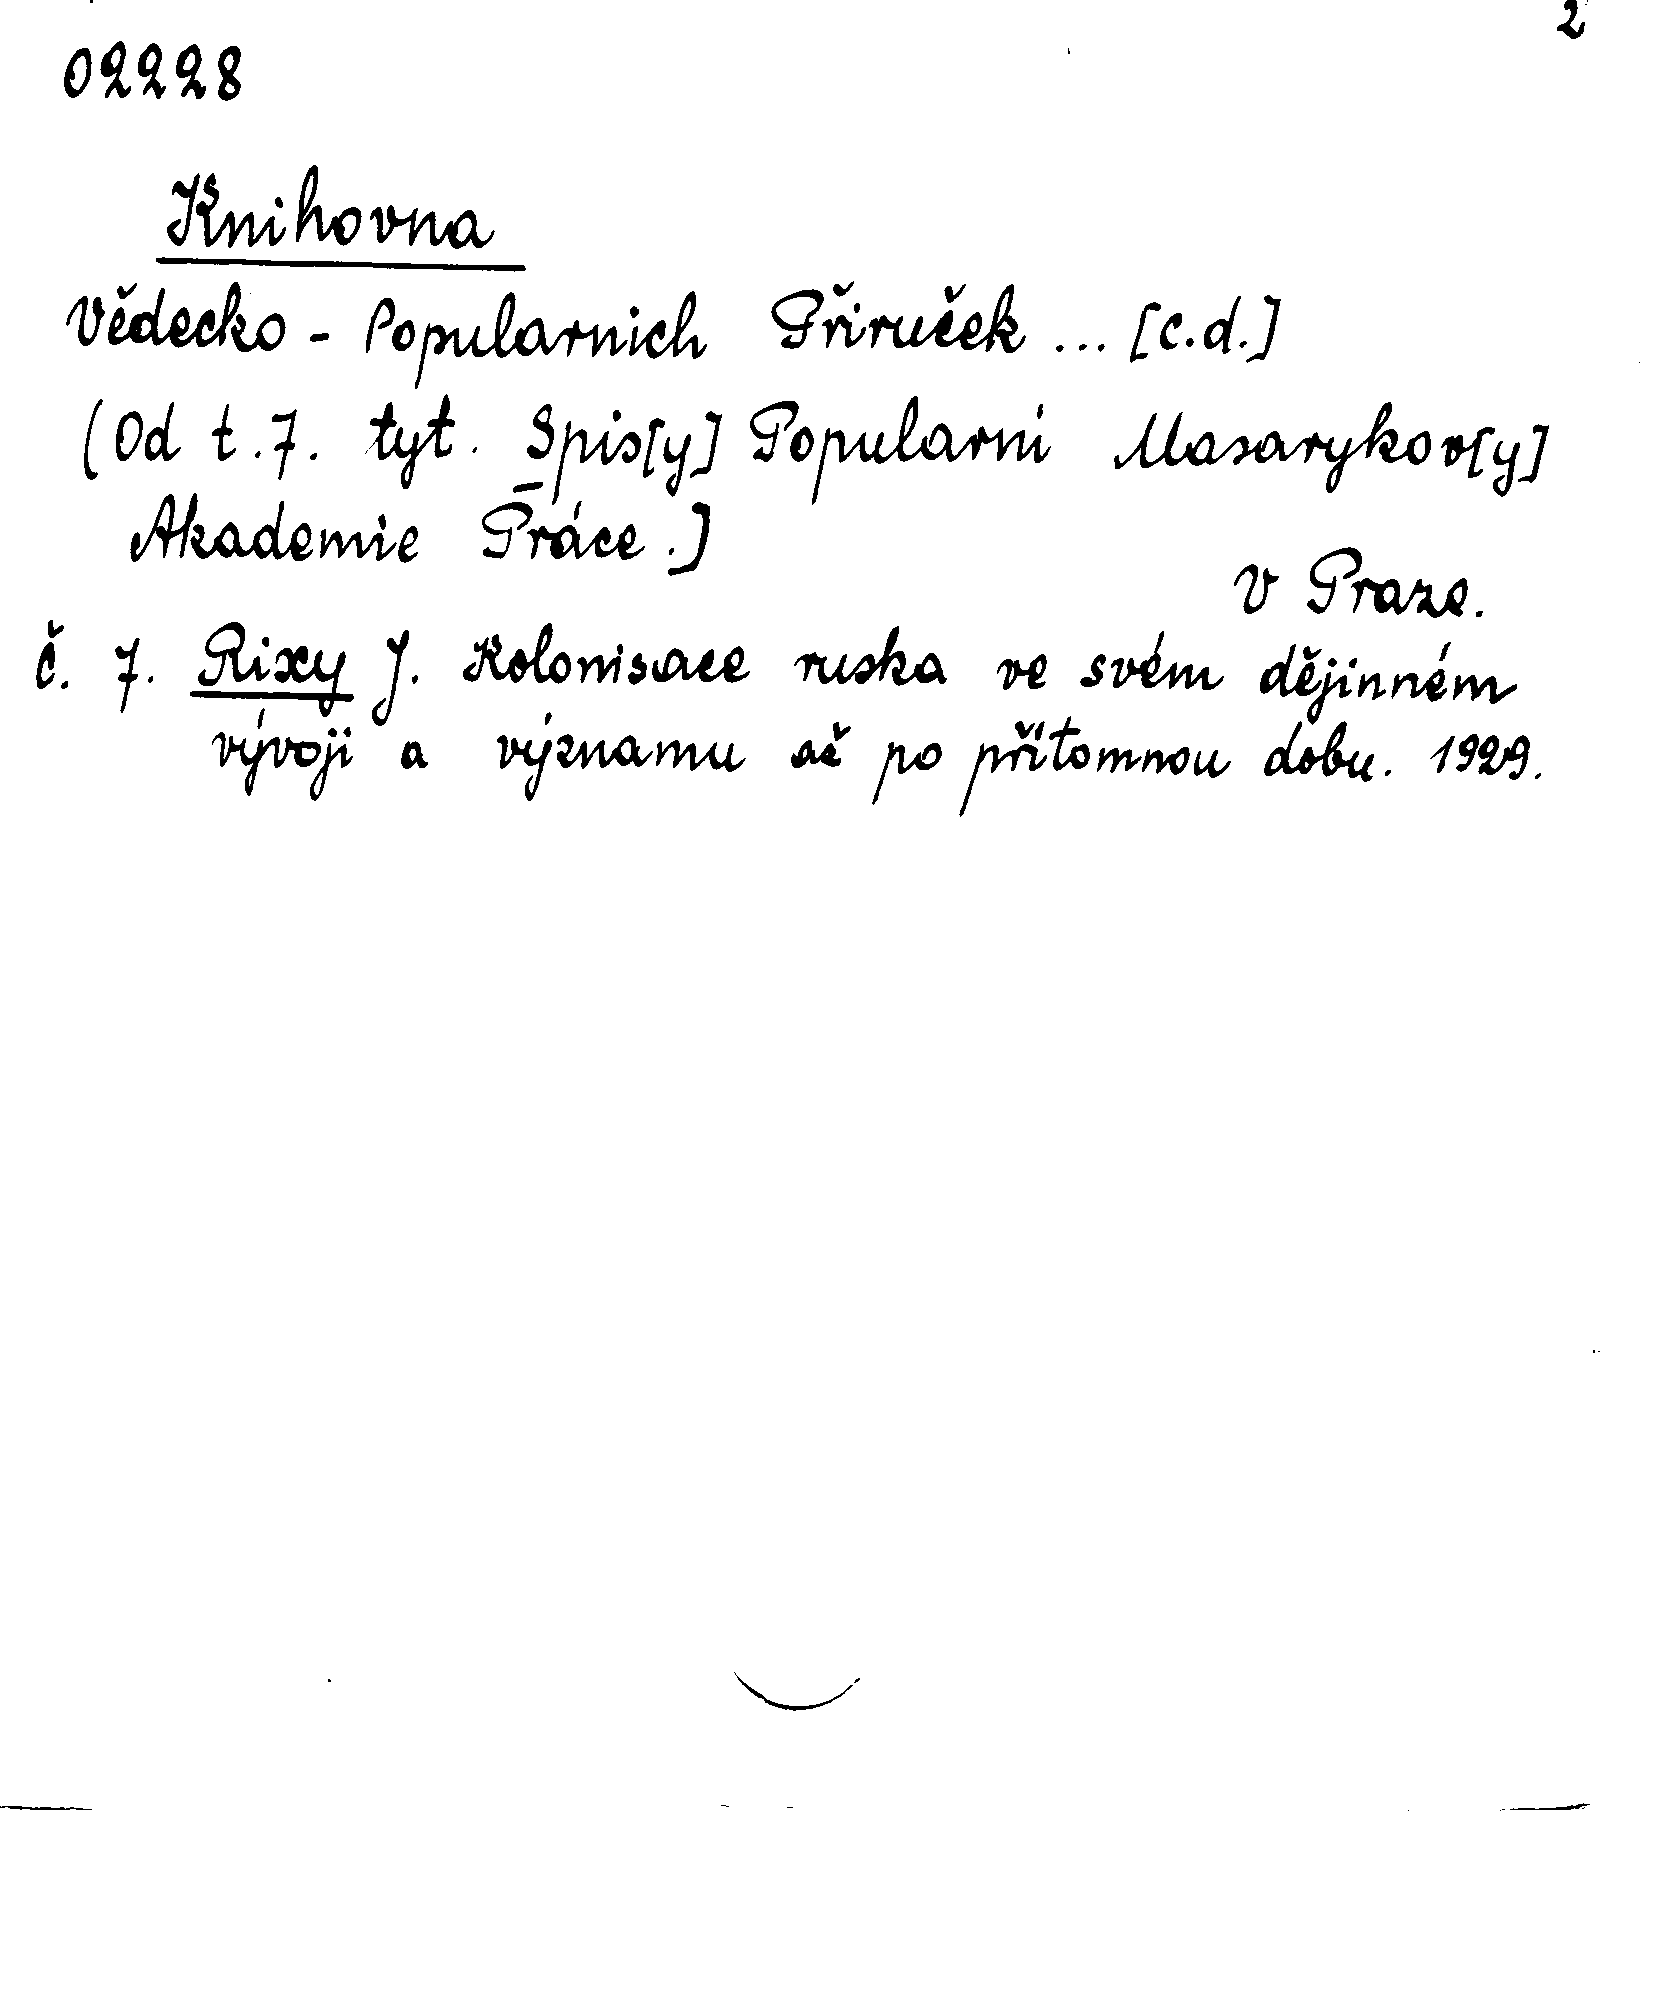 2
02228
Knihovna
Vědecko - Popularnich Přiruček ... [c.d.]
(Od t. 7. tyt. Spis[y] Popularni Masarykov[y]
Akademie Práce.]
V Praze.
č. 7. Rixy J. Kolonisace ruska ve svém dějinném
vývoji a významu až po přítomnou dobu. 1929.